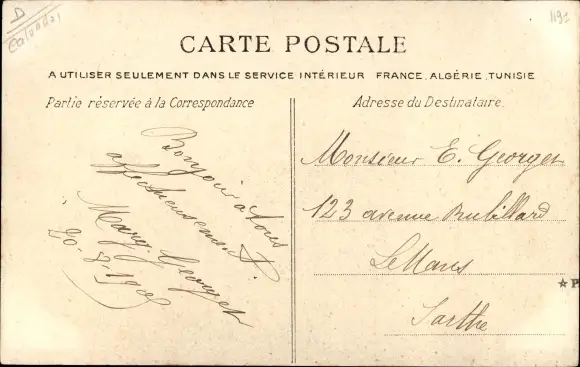 D
Calvados
1191
CARTE POSTALE
A UTILISER SEULEMENT DANS LE SERVICE INTÉRIEUR FRANCE, ALGÉRIE, TUNISIE
Partie réservée à la Correspondance
Adresse du Destinataire.
Bonjour à tous
affectueusement.
Mary. Georget
20-8-190
Monsieur E. Georget
123 avenue Rubillard
Le Mans
Sarthe